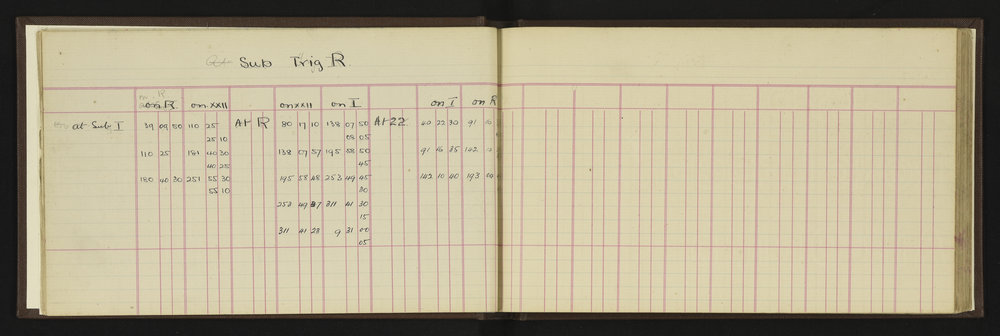 Sub Trig R
R
on R on XXII on XXII on I on I on R
at Sub I 39 09 50 110 25 At R 80 17 10 138 07 50 At 22 40 22 30 91
25 10 08 05
110 25 181 40 30 138 07 57 195 58 50 91 16 35 142
40 25 45
180 40 30 251 55 30 195 58 48 253 49 45 142 10 40 193
55 10 30
253 49 37 311 41 30
15
311 41 23 9 31 00
05